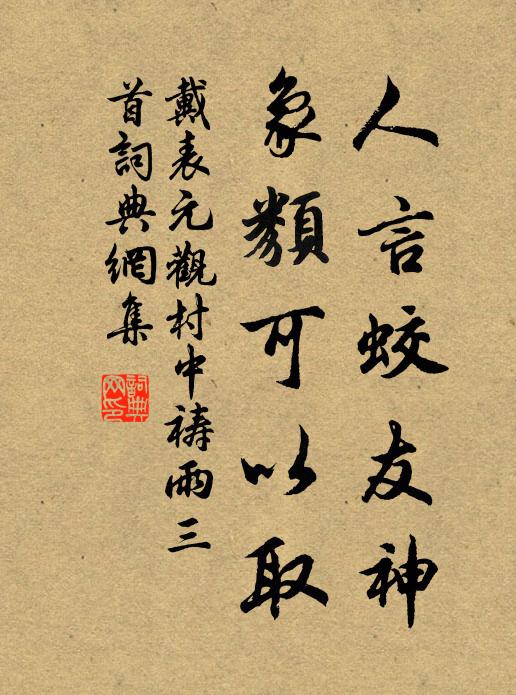 人言蛟友神
象類可以取
戴表元觀村中禱雨三
首詞典網集
詞典
网印